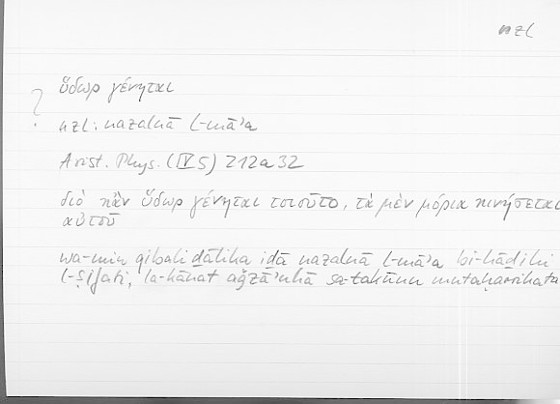 nzl
ὕδωρ γένηται
?
nzl: nazalnā l-māʾa
Arist. Phys. (IV 5) 212a32
διὸ κἂν ὕδωρ γένηται τοιοῦτο, τὰ μὲν μόρια κινήσεται
αὐτοῦ
wa-min qibali ḏālika iḏā nazalnā l-māʾa bi-hāḏihi
l-ṣifati, la-kānat aǧzāʾuhā sa-takūnu mutaḥarrikatan